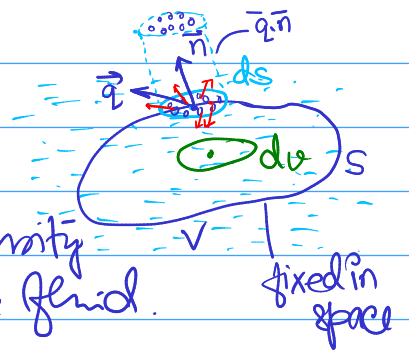 n⃗ q⃗.n⃗
q⃗ ds
dv S
V
nsity
fluid.
fixed in
space